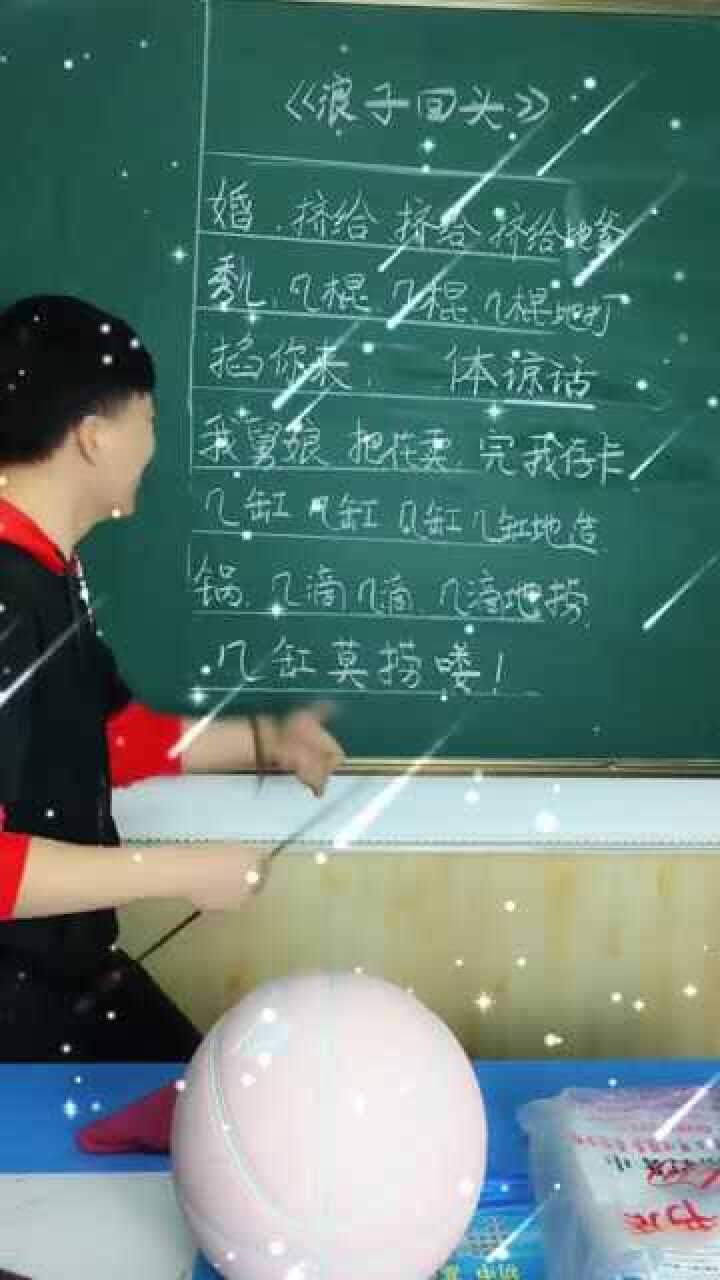 《浪子回头》
婚，挤给 挤给 挤给地爹
秀儿，几棍 几棍 几棍地打
掐你来， 体谅话
我舅娘 把花卖，完我存卡
几缸 几缸 几缸 几缸地造
锅，几滴 几滴 几滴地捞
几缸莫捞喽！
书法
初中